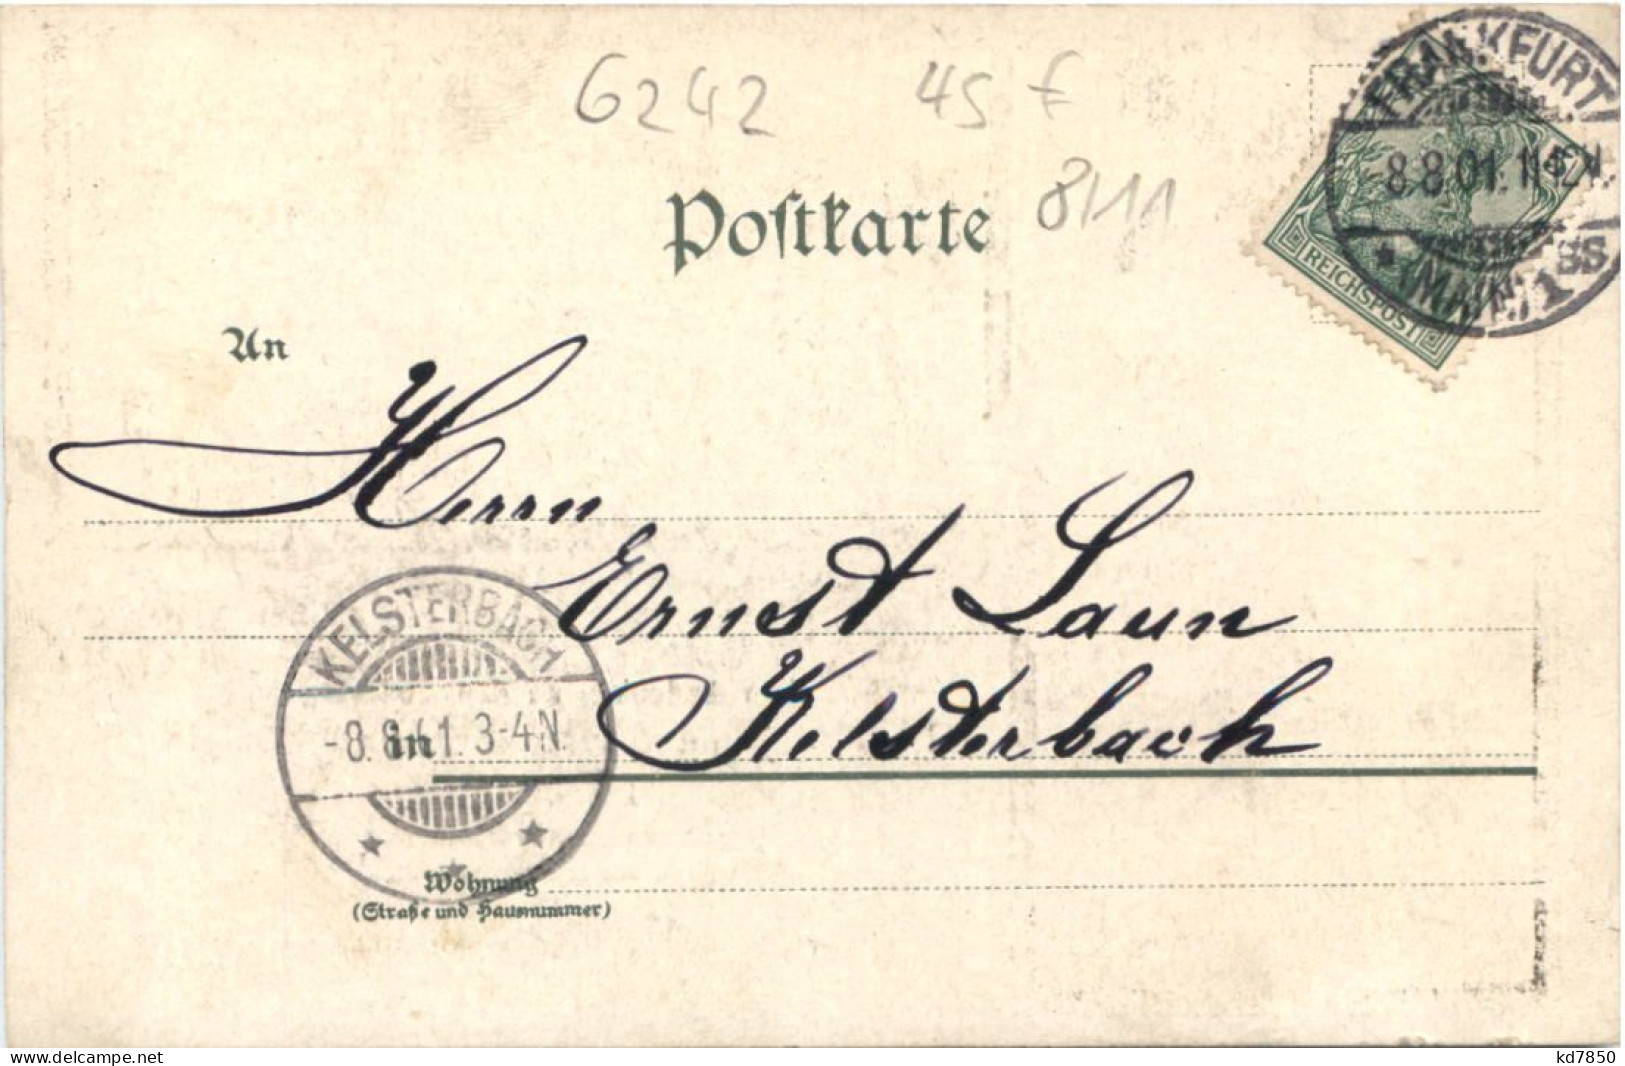 6242 45 f
8/11
FRANKFURT
8.8.01. 11-12N.
* (MAIN) 1 * SS
REICHSPOST
Postkarte
An
Herrn
Ernst Laun
Kelsterbach
KELSTERBACH
-8.8.01. 3-4.N.
in
Wohnung
(Straße und Hausnummer)
www.delcampe.net
kd7850